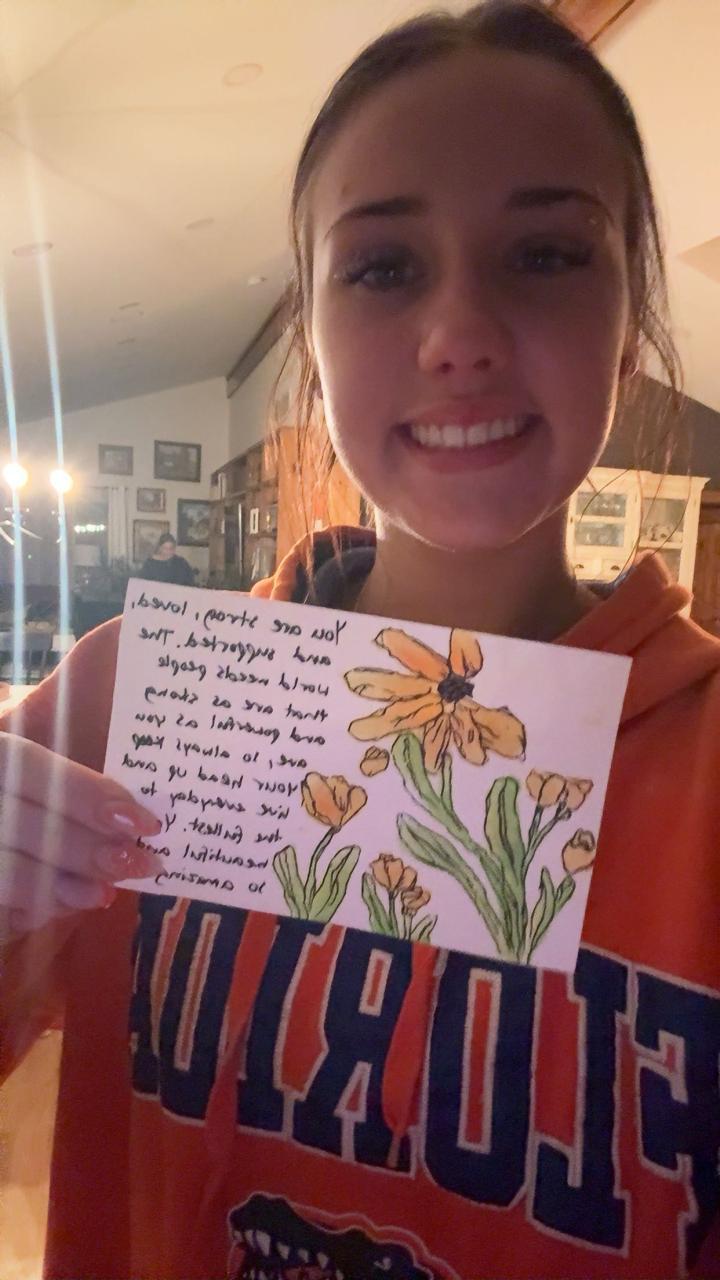 You are strong, loved,
and supported. The
world needs people
that are as strong
and powerful as you
are, so always keep
your head up and
live everyday to
the fullest.
beautiful and
so amazing
FLORIDA